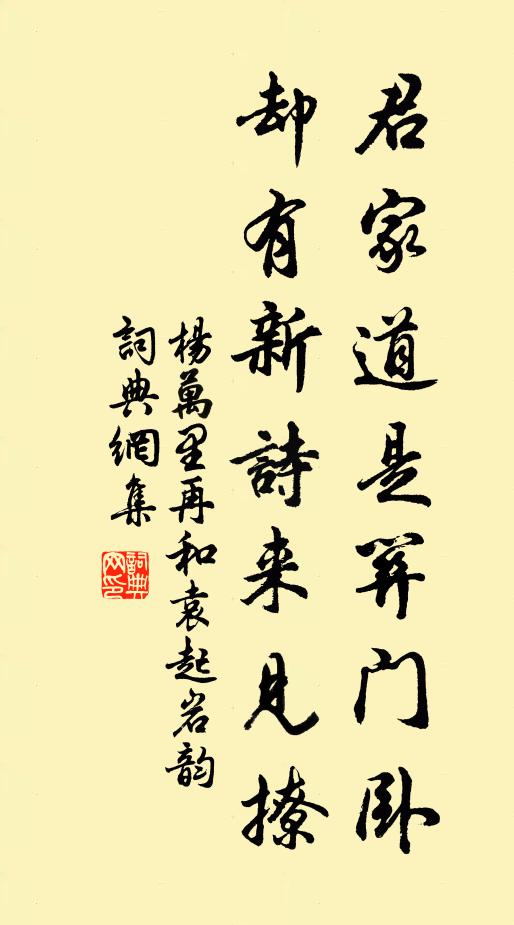 君家道是關门卧
却有新詩来見撩
楊萬里再和袁起岩韵
詞典網集
詞典网印